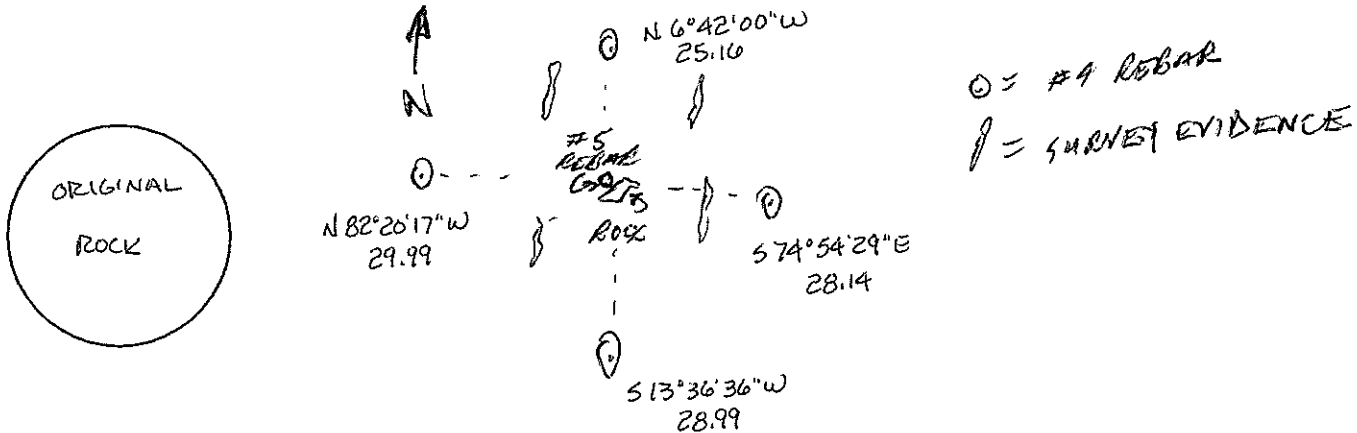 ORIGINAL
ROCK
N
N 6°42'00"W
25.16
#5
REBAR
ROCK
N 82°20'17"W
29.99
S 74°54'29"E
28.14
S 13°36'36"W
28.99
= #4 REBAR
= SURVEY EVIDENCE